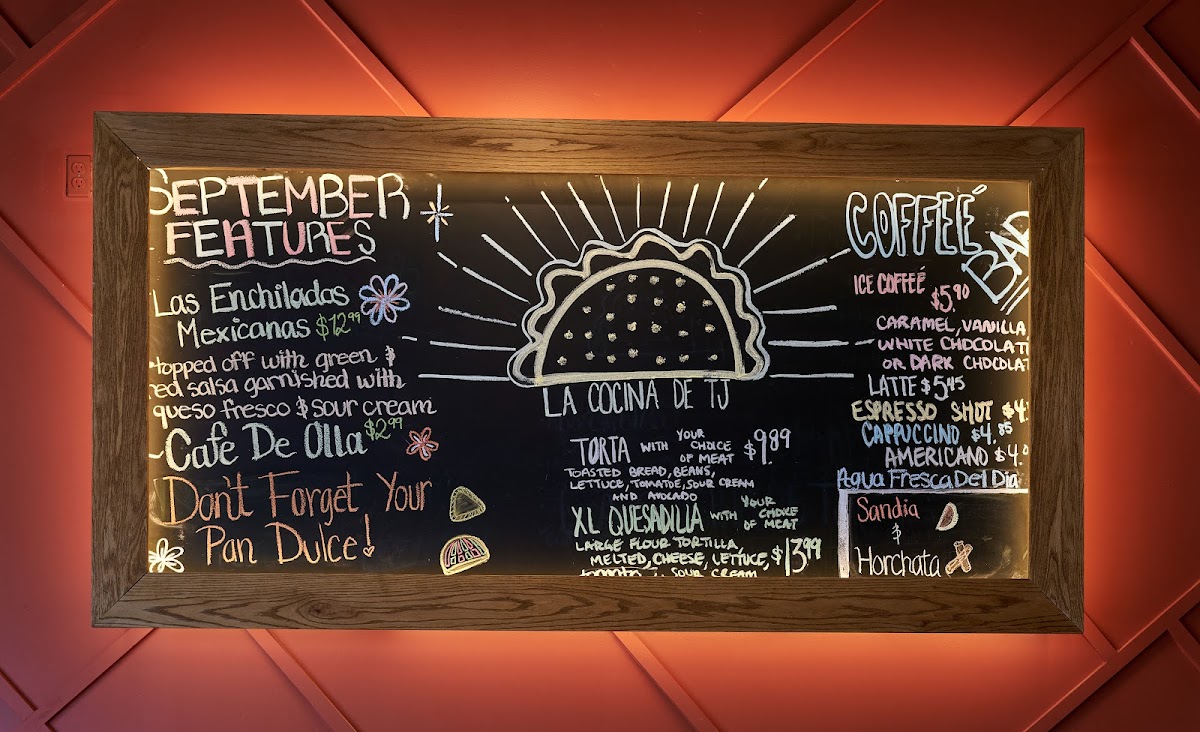 SEPTEMBER
FEATURES
Las Enchiladas
Mexicanas $12.99
topped off with green &
ed salsa garnished with
queso fresco & sour cream
Cafe De Olla $2.99
Don't Forget Your
Pan Dulce!
LA COCINA DE TJ
TORTA WITH YOUR CHOICE OF MEAT $9.89
TOASTED BREAD, BEANS,
LETTUCE, TOMATOE, SOUR CREAM
AND AVOCADO
XL QUESADILLA WITH YOUR CHOICE OF MEAT
LARGE FLOUR TORTILLA,
MELTED, CHEESE, LETTUCE, $13.99
tomato & SOUR CREAM
COFFEÉ
BAR
ICE COFFEÉ $5.90
CARAMEL, VANILLA
WHITE CHOCOLAT
OR DARK CHOCOLAT
LATTE $5.45
ESPRESSO SHOT $4.
CAPPUCCINO $4.85
AMERICANO $4.
Agua Fresca Del Dia
Sandia
&
Horchata